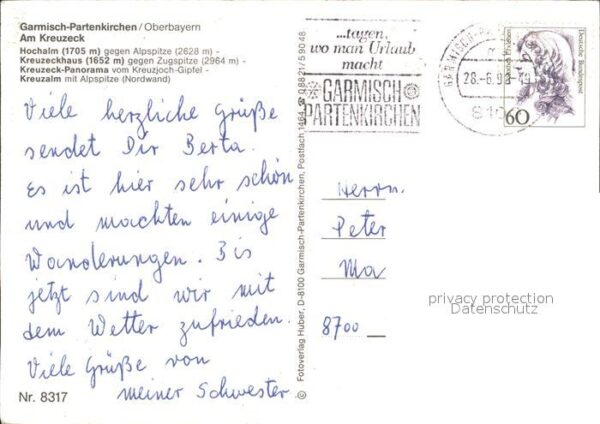 Garmisch-Partenkirchen/Oberbayern
Am Kreuzeck
Hochalm (1705 m) gegen Alpspitze (2628 m) -
Kreuzeckhaus (1652 m) gegen Zugspitze (2964 m) -
Kreuzeck-Panorama vom Kreuzjoch-Gipfel -
Kreuzalm mit Alpspitze (Nordwand)
Viele herzliche Grüße
sendet Dir Berta.
Es ist hier sehr schön
und machten einige
Wanderungen. Bis
jetzt sind wir mit
dem Wetter zufrieden.
Viele Grüße von
meiner Schwester
Nr. 8317
© Fotoverlag Huber, D-8100 Garmisch-Partenkirchen, Postfach 1464, ☎ 0 88 21/5 90 48
...tagen,
wo man Urlaub
macht
GARMISCH
PARTENKIRCHEN
GARMISCH-PA
28.-6.9
810
Deutsche Bundespost
60
Herrn
Peter
Ma
8700
privacy protection
Datenschutz